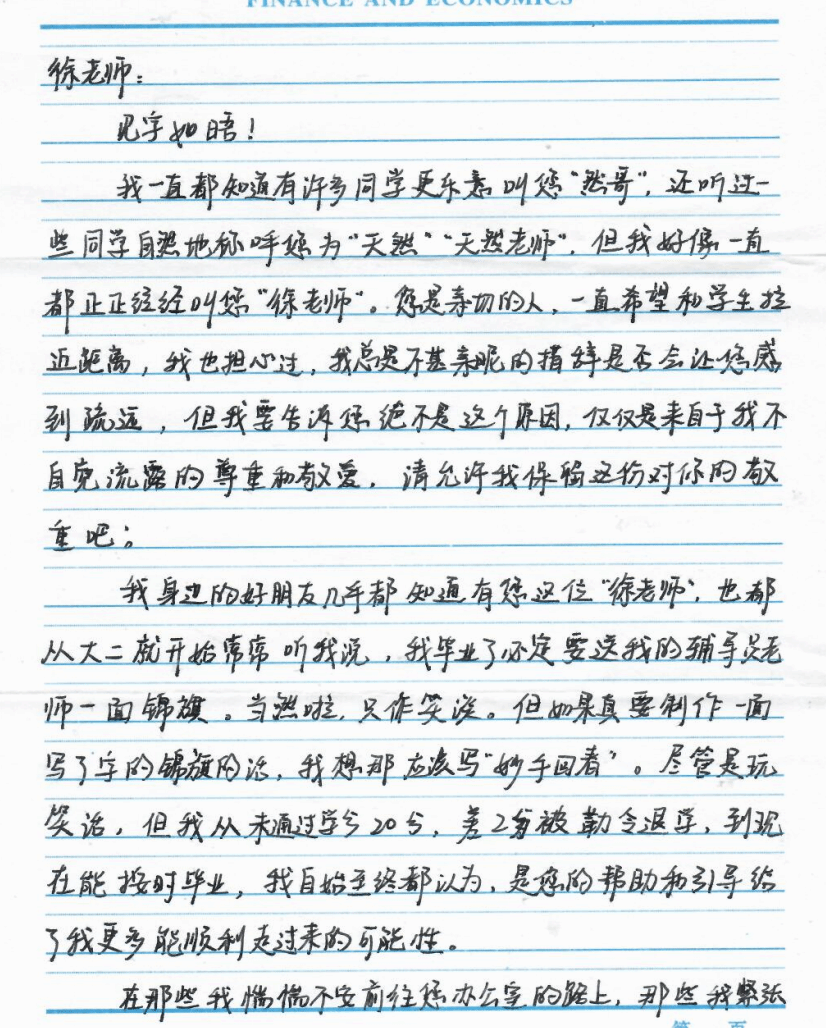 FINANCE AND ECONOMICS
徐老师：
见字如晤！
我一直都知道有许多同学更乐意叫您“然哥”，还听过一
些同学自然地称呼您为“天然”“天然老师”，但我好像一直
都正正经经叫您“徐老师”。您是亲切的人，一直希望和学生拉
近距离，我也担心过，我总是不甚亲昵的措辞是否会让您感
到疏远，但我要告诉您绝不是这个原因，仅仅是来自于我不
自觉流露的尊重和敬爱，请允许我保留这份对你的敬
重吧；
我身边的好朋友几乎都知道有您这位“徐老师”，也都
从大二就开始常常听我说，我毕业了必定要送我的辅导员老
师一面锦旗。当然啦，只作笑谈。但如果真要制作一面
写了字的锦旗的话，我想那应该写“妙手回春”。尽管是玩
笑话，但我从未通过学分20分，差2分被勒令退学，到现
在能按时毕业，我自始至终都认为，是您的帮助和引导给
了我更多能顺利走过来的可能性。
在那些我惴惴不安前往您办公室的路上，那些我紧张
第 页